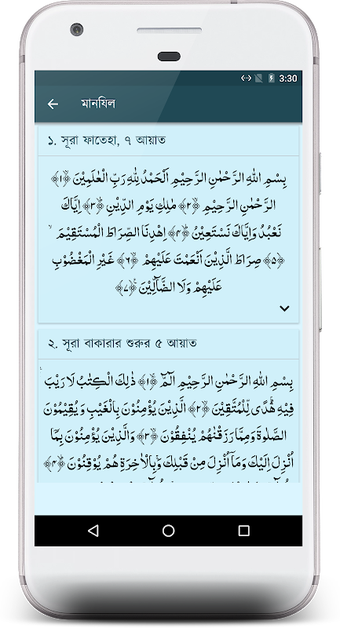 3:30
মানযিল
১. সূরা ফাতেহা, ৭ আয়াত
بِسْمِ اللهِ الرَّحْمٰنِ الرَّحِيْمِ اَلْحَمْدُ لِلّٰهِ رَبِّ الْعٰلَمِيْنَ ﴿١﴾
الرَّحْمٰنِ الرَّحِيْمِ ﴿٢﴾ مٰلِكِ يَوْمِ الدِّيْنِ ﴿٣﴾ اِيَّاكَ
نَعْبُدُ وَاِيَّاكَ نَسْتَعِيْنُ ﴿٤﴾ اِهْدِنَا الصِّرَاطَ الْمُسْتَقِيْمَ
﴿٥﴾ صِرَاطَ الَّذِيْنَ اَنْعَمْتَ عَلَيْهِمْ ﴿٦﴾ غَيْرِ الْمَغْضُوْبِ
عَلَيْهِمْ وَلَا الضَّآلِّيْنَ ﴿٧﴾
২. সূরা বাকারার শুরুর ৫ আয়াত
بِسْمِ اللهِ الرَّحْمٰنِ الرَّحِيْمِ الٓمّٓ ﴿١﴾ ذٰلِكَ الْكِتٰبُ لَا رَيْبَ
فِيْهِ هُدًى لِّلْمُتَّقِيْنَ ﴿٢﴾ الَّذِيْنَ يُؤْمِنُوْنَ بِالْغَيْبِ وَيُقِيْمُوْنَ
الصَّلٰوةَ وَمِمَّا رَزَقْنٰهُمْ يُنْفِقُوْنَ ﴿٣﴾ وَالَّذِيْنَ يُؤْمِنُوْنَ بِمَا
اُنْزِلَ اِلَيْكَ وَمَآ اُنْزِلَ مِنْ قَبْلِكَ وَبِالْاٰخِرَةِ هُمْ يُوْقِنُوْنَ ﴿٤﴾